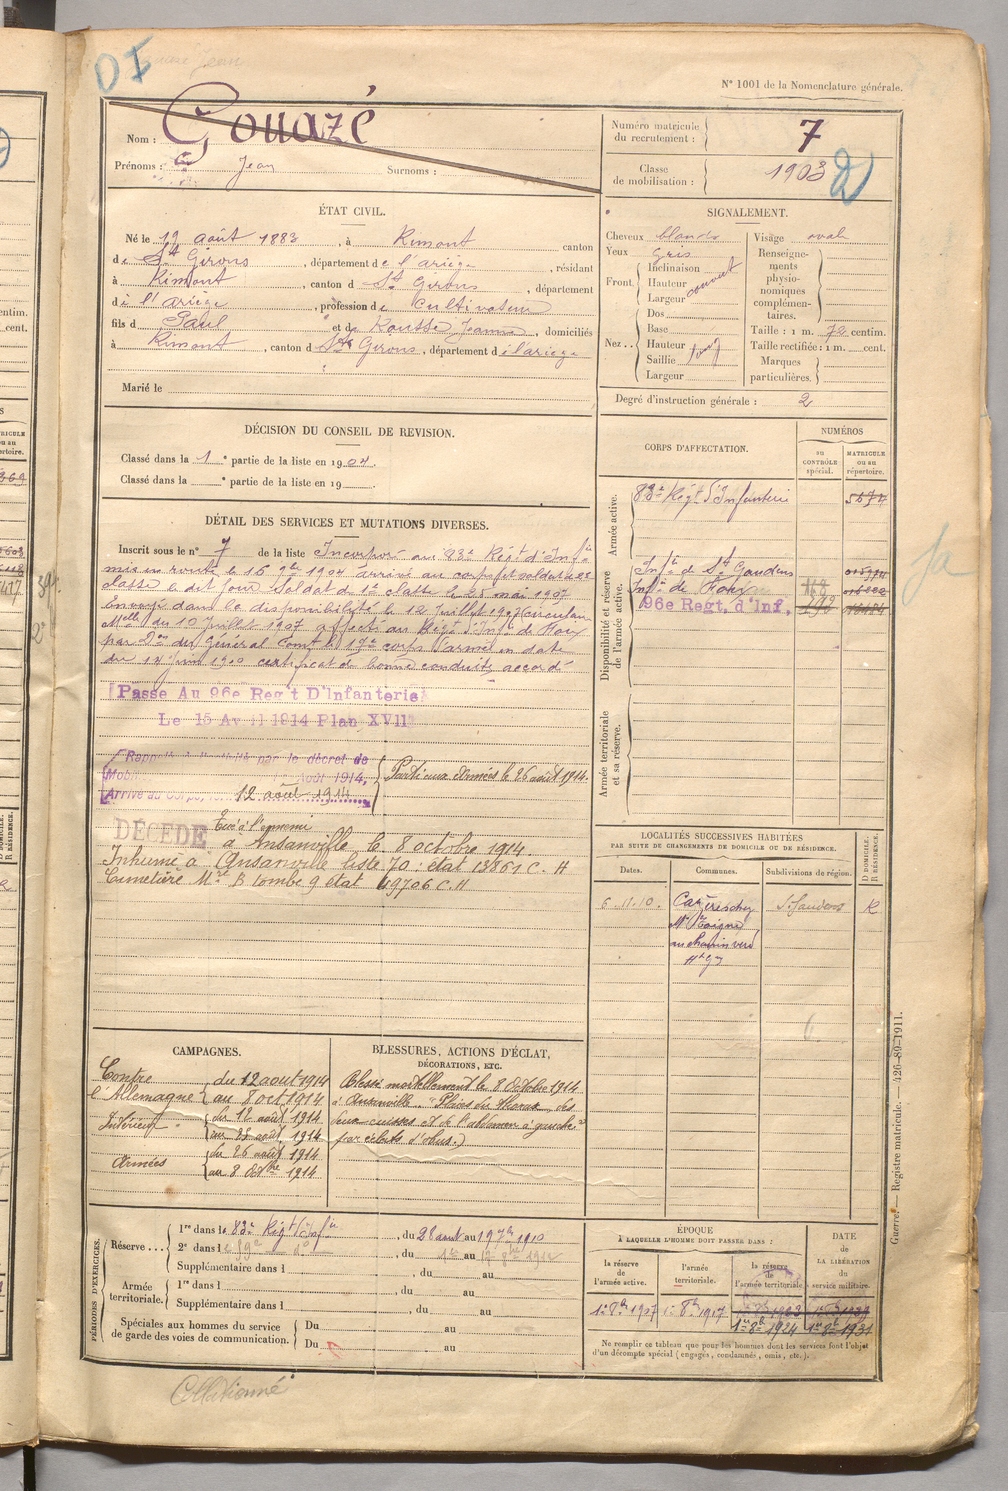 DI
N° 1001 de la Nomenclature générale.
Nom : Gouazé
Prénoms : Jean Surnoms :
Numéro matricule du recrutement : 7
Classe de mobilisation : 1903
ÉTAT CIVIL.
Né le 12 août 1883, à Rimont canton
de St Girons, département de l'ariège, résidant
à Rimont, canton d St Girons, département
de l'ariège, profession de Cultivateur
fils d Paul et de Rousse Jeanne, domiciliés
à Rimont, canton d St Girons, département d e l'ariège
Marié le
SIGNALEMENT.
Cheveux blonds
Yeux Gris
Front. Inclinaison
Hauteur couvert
Largeur
Nez.. Dos
Base
Hauteur fort
Saillie
Largeur
Visage ovale
Renseignements physionomiques complémentaires.
Taille : 1 m. 72 centim.
Taille rectifiée : 1 m. cent.
Marques particulières.
Degré d'instruction générale : 2
DÉCISION DU CONSEIL DE REVISION.
Classé dans la 1e partie de la liste en 1904.
Classé dans la e partie de la liste en 19
CORPS D'AFFECTATION.
NUMÉROS
au CONTRÔLE spécial.
MATRICULE ou au répertoire.
Armée active.
83e Régt d'Infanterie
Disponibilité et réserve de l'armée active.
Infie de St Gaudens
Infie de Foix
96e Regt. d'Inf.
Armée territoriale et sa réserve.
DÉTAIL DES SERVICES ET MUTATIONS DIVERSES.
Inscrit sous le n° 7 de la liste Incorporé au 83e Régt d'Infie
mis en route le 16 9bre 1904 arrivé au corps et soldat de 2e
classe le dit jour Soldat de 1e classe le 25 mai 1907
Envoyé dans la disponibilité le 12 Juillet 1907 (circulaire
Melle du 10 Juillet 1907 affecté au Régt d'Infie de Foix
par Don du Général Comt le 17e corps d'armée en date
du certificat de bonne conduite accordé
Passe Au 96e Reg't D'Infanterie
Le 15 Avril 1914 Plan XVII
Rappelé à l'activité par le décret de
Mobil août 1914,
Arrivé au Corps, le 12 août 1914
Parti aux Armées le 26 août 1914.
DÉCÉDÉ Tué à l'ennemi
à Ansanville le 8 octobre 1914.
Inhumé à Ansanville liste 70 : état 13861 C. H
Cimetière Mre B tombe 9 état 49706 C. H
LOCALITÉS SUCCESSIVES HABITÉES
PAR SUITE DE CHANGEMENTS DE DOMICILE OU DE RÉSIDENCE.
Dates.
Communes.
Subdivisions de région.
D DOMICILE. R RÉSIDENCE.
6.11.10.
St Gaudens
R
au chemin vert
Hte Gne
CAMPAGNES.
Contre l'Allemagne du 12 août 1914
au 8 oct 1914
Intérieur du 12 août 1914
au 25 août 1914
Armées du 26 août 1914
au 8 Octbre 1914
BLESSURES, ACTIONS D'ÉCLAT,
DÉCORATIONS, ETC.
Blessé mortellement le 8 Octobre 1914
à Ansanville "Plaies du thorax, des
deux cuisses et de l'abdomen à gauche"
par éclats d'obus.)
PÉRIODES D'EXERCICES.
Réserve... 1re dans le 83e Régt d'Infie, du 28 août au 19 7bre 1910
2e dans le , du au
Supplémentaire dans l , du au
Armée territoriale. 1re dans l , du au
Supplémentaire dans l , du au
Spéciales aux hommes du service
de garde des voies de communication. Du au
Du au
ÉPOQUE
À LAQUELLE L'HOMME DOIT PASSER DANS :
la réserve de l'armée active.
l'armée territoriale.
la réserve de l'armée territoriale.
DATE DE LA LIBÉRATION du service militaire.
1er 8bre 1907
1er 8bre 1917
1er 8bre 1924
1er 8bre 1931
Ne remplir ce tableau que pour les hommes dont les services font l'objet
d'un décompte spécial (engagés, condamnés, omis, etc.).
Guerre. — Registre matricule. — 426-89-1911.
Collationné